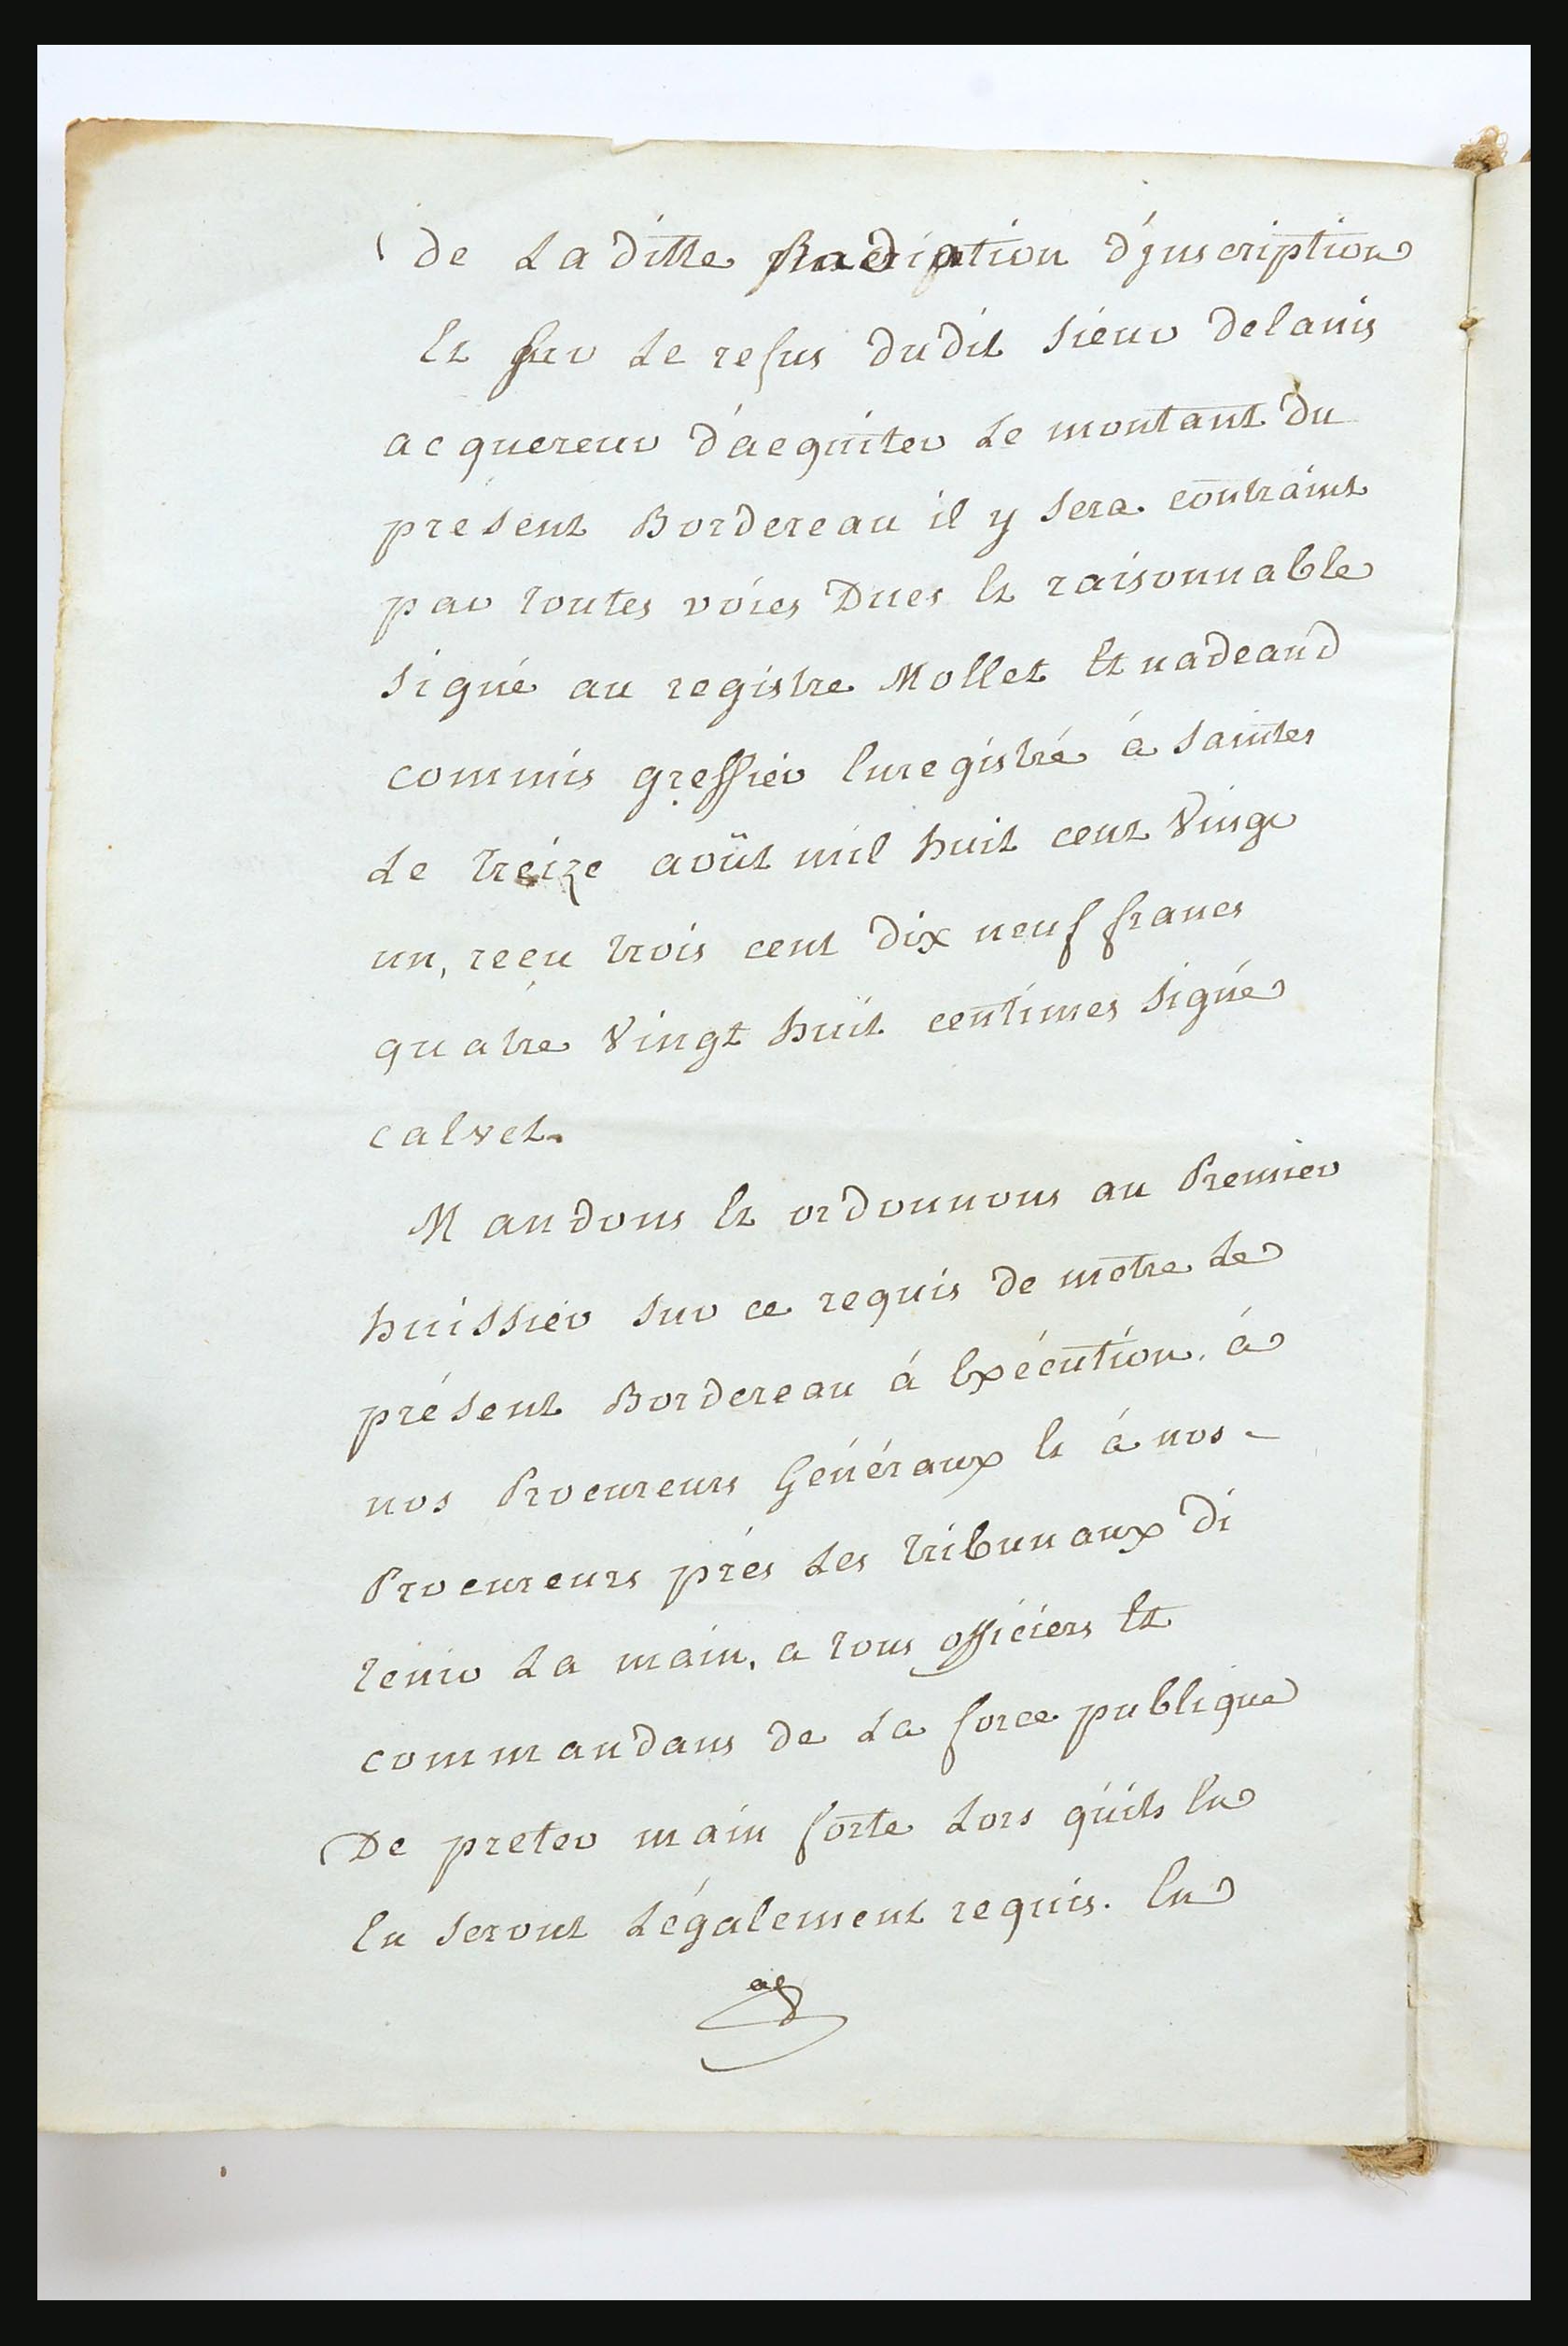 de La ditte Radiation d'ynscription
Et sur Le refus dudit Sieur delanis
acquereur d'acquiter Le montant du
présent Bordereau il y sera contraint
par toutes voies Dues Et raisonnable
signé au registre Mollet Et nadeaud
commis greffier Enregistré à saintes
Le treize août mil huit cent Vingt
un, reçu trois cent dix neuf francs
quatre Vingt huit centimes signé
calvet.
Mandons Et ordonnons au Premier
huissier sur ce requis de metre Le
présent Bordereau à Exécution, à
nos Procureurs Généraux Et à nos -
Procureurs près Les tribunaux Di
tenir La main, a tous officiers Et
commandans de La force publique
De preter main forte Lors qu'ils En
En seront Légalement requis. En